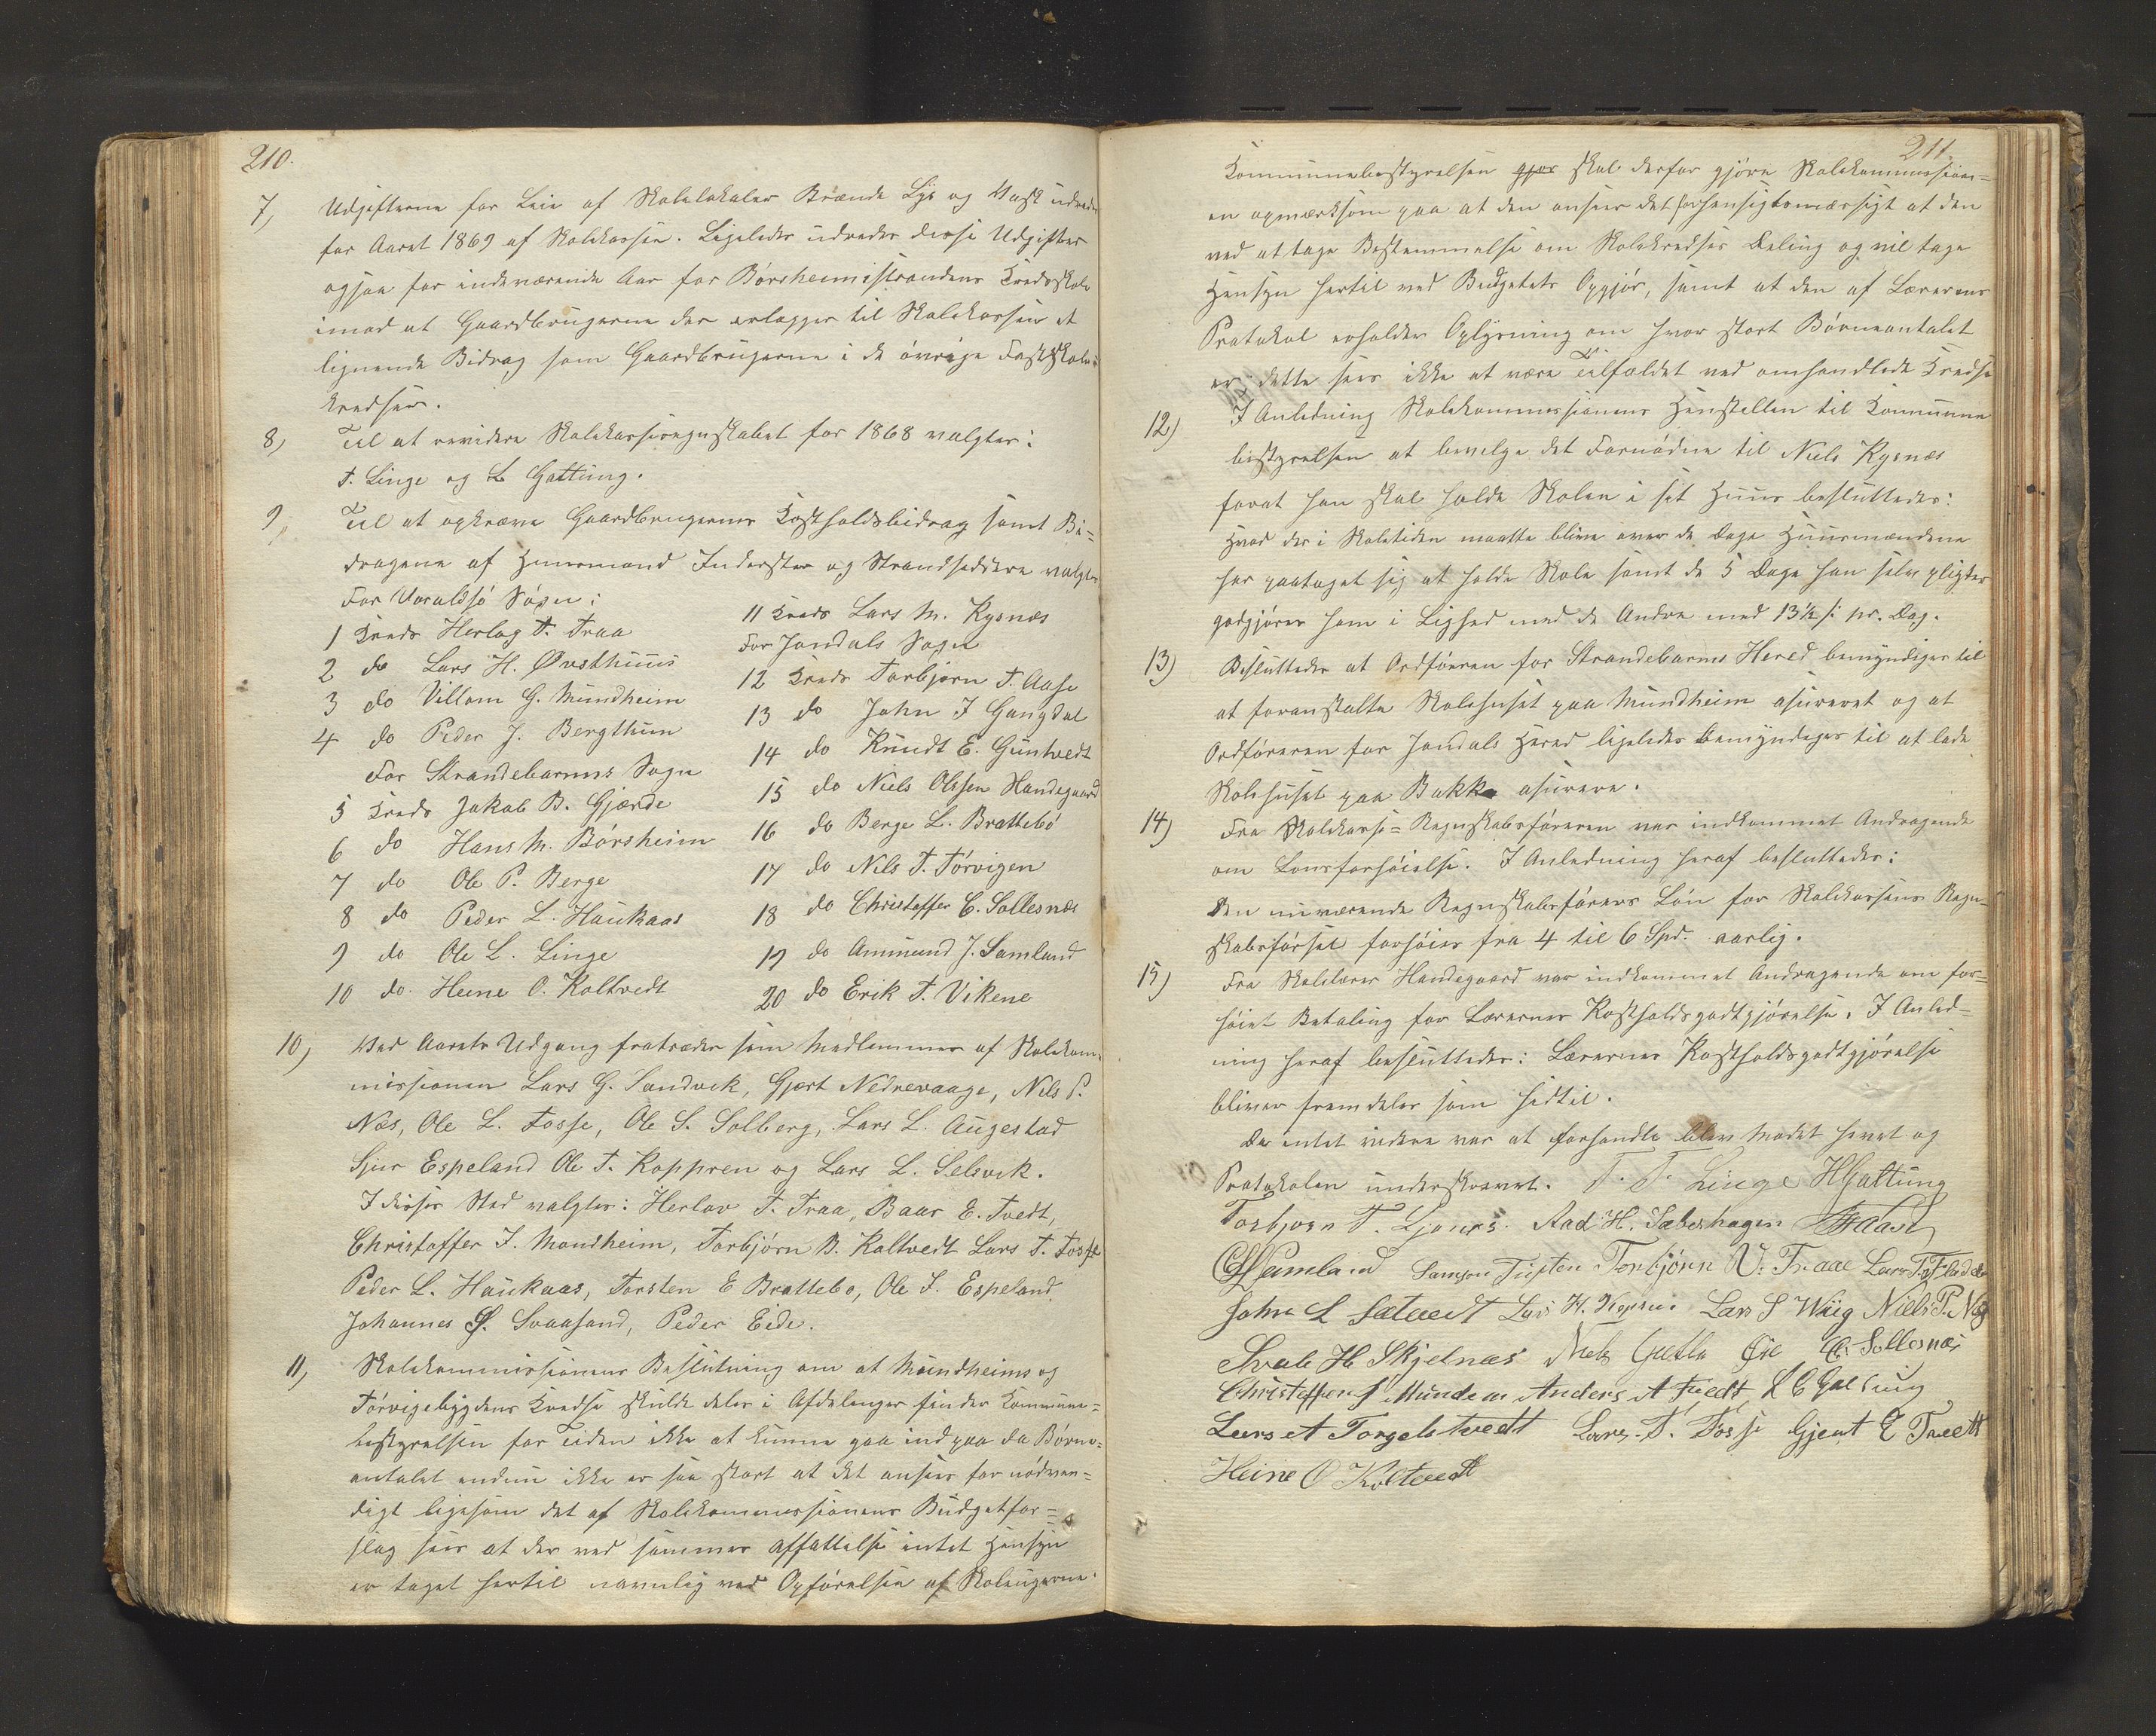 210.
7, Udgifterne for Leie af Skolelokaler Brænde Lys og Vask udredes
for Aaret 1869 af Skolekassen. Ligeledes udredes disse Udgifter
ogsaa for indeværende Aar for Børsheimsstrandens Kredsskole
imod at Gaardbrugerne der erlægger til Skolekassen et
lignende Bidrag som Gaardbrugerne i de øvrige Fastskole-
kredser.
8, Til at revidere Skolekasseregnskabet for 1868 valgtes:
T. Linge og L Gattung.
9, Til at opkræve Gaardbrugernes Kostholdsbidrag samt Bi=
dragene af Huusmænd Inderster og Strandsiddere valgtes
For Varaldsø Sogn:
1 Kreds Herlog T. Traa
2 do Lars H. Øvsthuus
3 do Villom G. Mundheim
4 do Peder J. Bergthun
For Strandebarms Sogn
5 Kreds Jakob B. Gjærde
6 do Hans M. Børsheim
7 do Ole P. Berge
8 do Peder L. Haukaas
9 do Ole L. Linge
10 do. Heine O. Koltvedt
11 Kreds Lars M. Kysnæs
For Jondals Sogn
12 Kreds Torbjørn T. Aase
13 do John J Gangdal
14 do Knudt E. Guntvedt
15 do Niels Olssen Handegaard
16 do Berge L. Brattebø
17 do Nils T. Tørvigen
18 do Christoffer C. Sollesnæs
19 do Ammund J. Samland
20 do Erik T. Vikene
10, Ved Aarets Udgang fratræder som Medlemmer af Skolekom-
missionen Lars G. Sandvik, Gjert Nedrevaage, Nils P.
Næs, Ole L. Fosse, Ole S. Solberg, Lars L. Augestad
Sjur Espeland Ole T. Koppren og Lars L. Selsvik.
I disses Sted valgtes: Herlov T. Traa, Baar E. Tvedt,
Christoffer J. Mondheim, Torbjørn B. Koltvedt Lars T. Fosse
Peder L. Haukaas, Torsten E Brattebø, Ole S. Espeland
Johannes S. Svaasand, Peder Eide.
11, Skolekommissionens Beslutning om at Mundheims og
Tørvigebygdens Kredse skulde deles i Afdelinger finder Kommune=
bestyrelsen for Tiden ikke at kunne gaa ind paa da Børne=
antalet endnu ikke er saa stort at det ansees for nødven=
digt ligesom det af Skolekommissionens Budgetfor=
slag sees at der ved sammes Affattelse intet Hensyn
er taget hertil navnlig ved Opførelsen af Skoleugerne.
211.
Kommunebestyrelsen gjør skal derfor gjøre Skolekommission=
en opmærksom paa at den anseer det forhensigtsmæssigt at den
ved at tage Bestemmelse om Skolekredses Deling og vil tage
Hensyn hertil ved Budgetets Opgjør, samt at den af Lærerens
Protokol erholder Oplysning om hvor stort Børneantalet
er dette sees ikke at være Tilfældet ved omhandlede Kredse
12) I Anledning Skolekommissionens Henstillen til Kommune
bestyrelsen at bevilge det Fornødne til Niels Kysnæs
forat han skal holde Skolen i sit Huus besluttedes:
Hvad der i Skoletiden maatte blive over de Dage Huusmændene
har paataget sig at holde Skole samt de 5 Dage han selv pligter
godgjøres ham i Lighed med de Andre med 13½ s: pr. Dag.
13) Besluttedes at Ordføreren for Strandebarms Hered bemyndiges til
at foranstalte Skolehuset paa Mundheim asureret og at
Ordføreren for Jondals Hered ligeledes bemyndiges til at lade
Skolehuset paa Bakke asurere.
14) Fra Skolekasse=Regnskabsføreren var indkommet Andragende
om Lønsforhøielse. I Anledning heraf besluttedes:
Den nuværende Regnskabsførers Løn for Skolekassens Regn=
skabsførsel forhøies fra 4 til 6 Spd. aarlig.
15) Fra Skolelærer Handegaard var indkommet Andragende om for=
høiet Betaling for Lærernes Kostholdsgodtgjørelse. I Anled=
ning heraf besluttedes: Lærernes Kostholdsgodtgjørelse
bliver fremdeles som hidtil.
Da intet videre var at forhandle blev Mødet hævet og
Protokolen underskrevet. T. T. Linge HGattung
Torbjørn T. Ljones. Aad H. Sæbershagen
Samland Samson Tuften Torbjørn V. Traae Lars T. Fladabø
John L Sætvedt Lars H. Koppre. Lars S Wiig Niels P. Næs
Svale H Skjelnæs Niels Øie C. Sollesnæs
Christoffer J Mundem Anders A Tvedt L C Gattung
Lars A Torgelstvedt Lars T. Fosse Gjert E Tvedt
Heine O Koltvedt